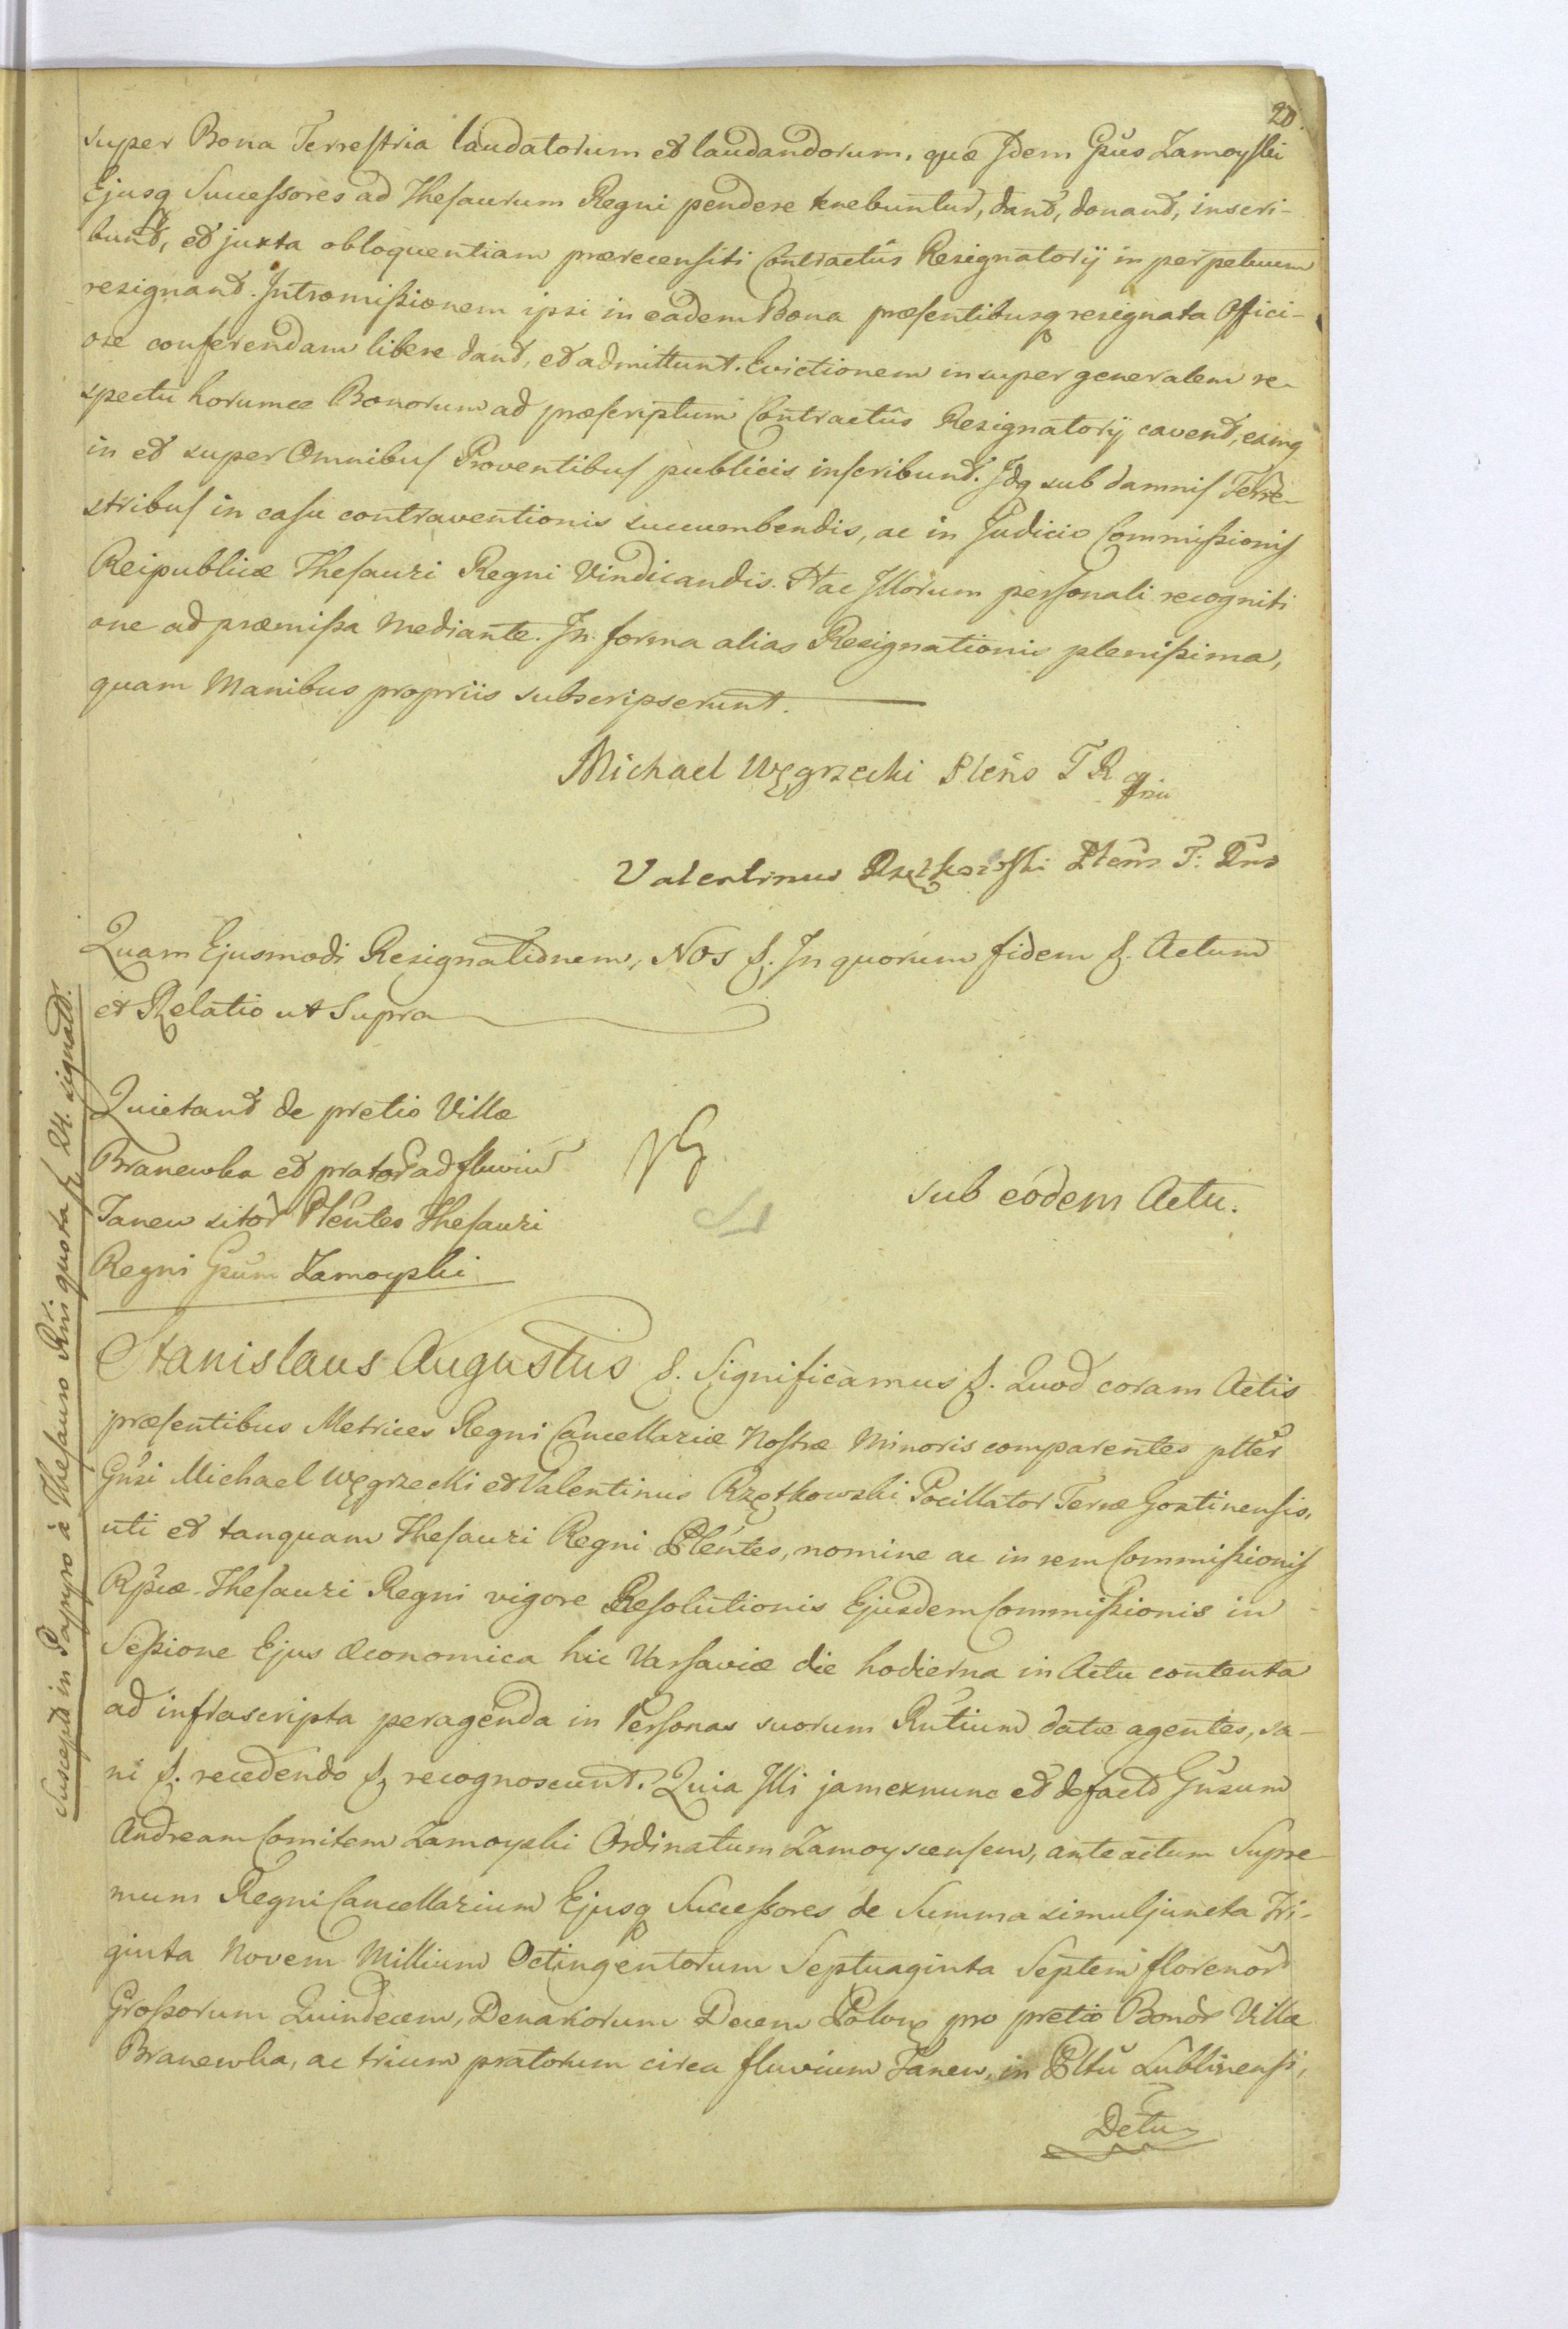 20.
super Bona Terrestria laudatorum et laudandorum, quæ Idem Gñus Zamoyski
Ejusq Successores ad Thesaurum Regni pendere tenebuntur, dant, donant, inscri-
bunt, et juxta obloquentiam prærecensiti Contractûs Resignatorij in perpetuum
resignant. Intromissionem ipsi in eadem Bona præsentibusq resignata Offici-
ose conferendam libere dant, et admittunt. Evictionem insuper generalem re-
spectu horumce Bonorum ad præscriptum Contractûs Resignatorij cavent, eamq
in et super Omnibus Proventibus publicis inscribunt. Idq sub damnis Terre-
stribus in casu contraventionis succumbendis, ac in Judicio Commissionis
Reipublicæ Thesauri Regni Vindicandis. Hac Illorum personali recogniti
one ad præmissa Mediante. In forma alias Resignationis plenissima,
quam Manibus propriis subscripserunt.
Michael Węgrzecki Pleñs T R
Valentinus Rzętkowski Pleñs T: Rñs
Quam Ejusmodi Resignationem, Nos &. In quorum fidem &. Actum
et Relatio ut Supra
Quietant de pretio Villæ
Branewka et prator ad fluviu
Tanew sitor Pleñtes Thesauri
Regni Gñum Zamoyski
sub eodem Actu.
Suscept in Papyro à Thesauro Rñi quota fr 24. signat.
Stanislaus Augustus &. Significamus &. Quod coram Actis
præsentibus Metrices Regni Cancellariæ Nostræ Minoris comparentes ptter
Gñsi Michael Węgrzecki et Valentinus Rzętkowski Pocillator Terræ Gostinensis,
uti et tanquam Thesauri Regni Pleñtes, nomine ac in rem Commissionis
Rpcæ Thesauri Regni vigore Resolutionis Ejusdem Commissionis in
Sessione Ejus Œconomica hic Varsaviæ die hodierna in Actu contenta
ad infrascripta peragenda in Personas suorum Rñtium datæ agentes, sa-
ni &. recedendo &. recognoscunt. Quia Illi jam exnunc et defacto Gñsum
Andream Comitem Zamoyski Ordinatum Zamoyscensem, anteactum Supre-
mum Regni Cancellarium Ejusq Successores de Summa simul juncta Tri-
ginta Novem Millium Octingentorum Septuaginta Septem florenor
Grossorum Quindecem, Denariorum Decem Polon pro pretio Bonor Villæ
Branewka, ac trium pratorum circa fluvium Tanew, in Pltu Lublinensi,